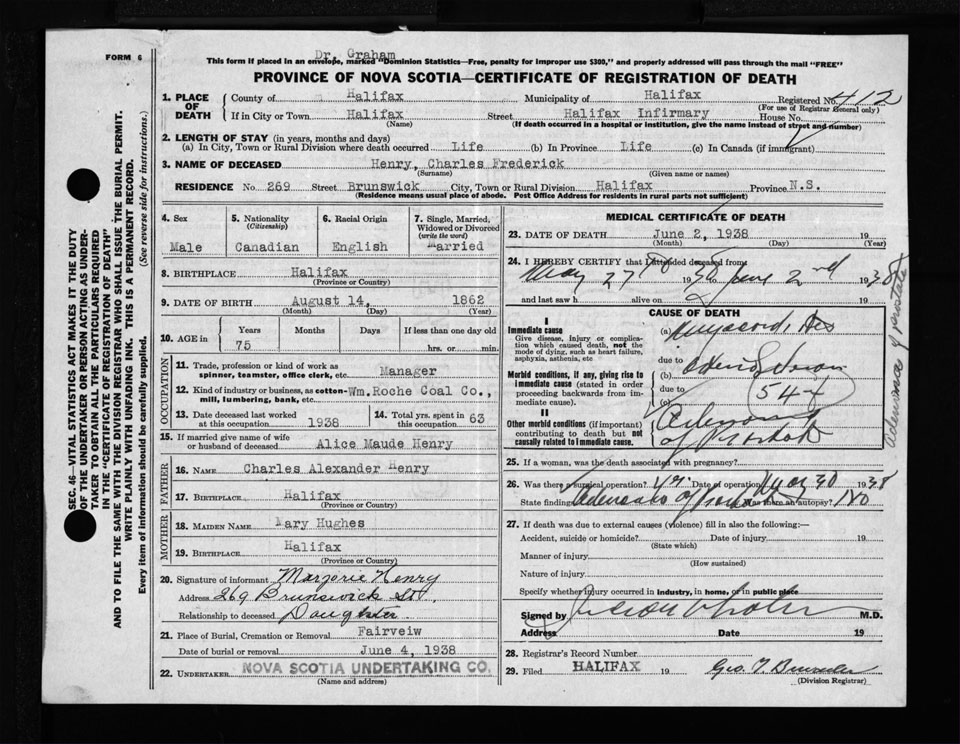 FORM 6
Dr. Graham
This form if placed in an envelope, marked "Dominion Statistics—Free, penalty for improper use $300," and properly addressed will pass through the mail "FREE"
PROVINCE OF NOVA SCOTIA—CERTIFICATE OF REGISTRATION OF DEATH
1. PLACE OF DEATH
County of Halifax Municipality of Halifax Registered No. 412
(For use of Registrar General only)
If in City, or Town Halifax Street Halifax Infirmary House No.
(Name) (If death occurred in a hospital or institution, give the name instead of street and number)
2. LENGTH OF STAY (in years, months and days)
(a) In City, Town or Rural Division where death occurred Life (b) In Province Life (c) In Canada (if immigrant)
3. NAME OF DECEASED Henry, Charles Frederick
(Surname) (Given name or names)
RESIDENCE No. 269 Street Brunswick City, Town or Rural Division Halifax Province N.S.
(Residence means usual place of abode. Post Office Address for residents in rural parts not sufficient)
4. Sex 5. Nationality 6. Racial Origin 7. Single, Married, Widowed or Divorced
(Citizenship) (write the word)
Male Canadian English Married
8. BIRTHPLACE Halifax
(Province or Country)
9. DATE OF BIRTH August 14, 1862
(Month) (Day) (Year)
10. AGE in Years Months Days If less than one day old
75 hrs. or min.
OCCUPATION
11. Trade, profession or kind of work as spinner, teamster, office clerk, etc. Manager
12. Kind of industry or business, as cotton-mill, lumbering, bank, etc. Wm. Roche Coal Co.,
13. Date deceased last worked at this occupation 1938
14. Total yrs. spent in this occupation 63
15. If married give name of wife or husband of deceased Alice Maude Henry
FATHER
16. NAME Charles Alexander Henry
17. BIRTHPLACE Halifax
(Province or Country)
MOTHER
18. MAIDEN NAME Mary Hughes
19. BIRTHPLACE Halifax
(Province or Country)
20. Signature of informant Marjorie Henry
Address 269 Brunswick St.
Relationship to deceased Daughter
21. Place of Burial, Cremation or Removal Fairveiw
Date of burial or removal June 4, 1938
22. UNDERTAKER NOVA SCOTIA UNDERTAKING CO.
(Name and address)
MEDICAL CERTIFICATE OF DEATH
23. DATE OF DEATH June 2, 1938 19
(Month) (Day) (Year)
24. I HEREBY CERTIFY that I attended deceased from
May 27 19 38 June 2nd 1938
and last saw h alive on 19
CAUSE OF DEATH
I
Immediate cause (a)
Give disease, injury or complication which caused death, not the mode of dying, such as heart failure, asphyxia, asthenia, etc
due to
Morbid conditions, if any, giving rise to immediate cause (stated in order proceeding backwards from immediate cause).
(b)
due to
(c)
II
Other morbid conditions (if important) contributing to death but not causally related to immediate cause.
Adenoma of Prostate
Adenoma of prostate
25. If a woman, was the death associated with pregnancy?
26. Was there a surgical operation? Date of operation May 30 1938
State findings of Was there an autopsy? No
27. If death was due to external causes (violence) fill in also the following:—
Accident, suicide or homicide? Date of injury 19
(State which)
Manner of injury
(How sustained)
Nature of injury
Specify whether injury occurred in industry, in home, or in public place
Signed by M.D.
Address Date 19
28. Registrar's Record Number
29. Filed HALIFAX 19 Geo.
(Division Registrar)
SEC. 46—VITAL STATISTICS ACT MAKES IT THE DUTY
OF THE UNDERTAKER OR PERSON ACTING AS UNDER-
TAKER TO OBTAIN ALL THE PARTICULARS REQUIRED
IN THE "CERTIFICATE OF REGISTRATION OF DEATH"
AND TO FILE THE SAME WITH THE DIVISION REGISTRAR WHO SHALL ISSUE THE BURIAL PERMIT.
WRITE PLAINLY WITH UNFADING INK. THIS IS A PERMANENT RECORD.
Every item of information should be carefully supplied. (See reverse side for instructions.)